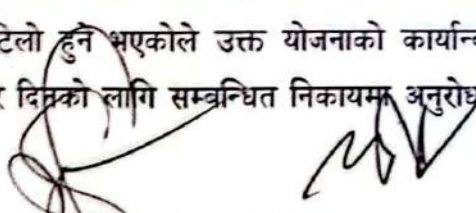 टेलो हुने भएकोले उक्त योजनाको कार्यान्
दिनको लागि सम्बन्धित निकायमा अनुरोध